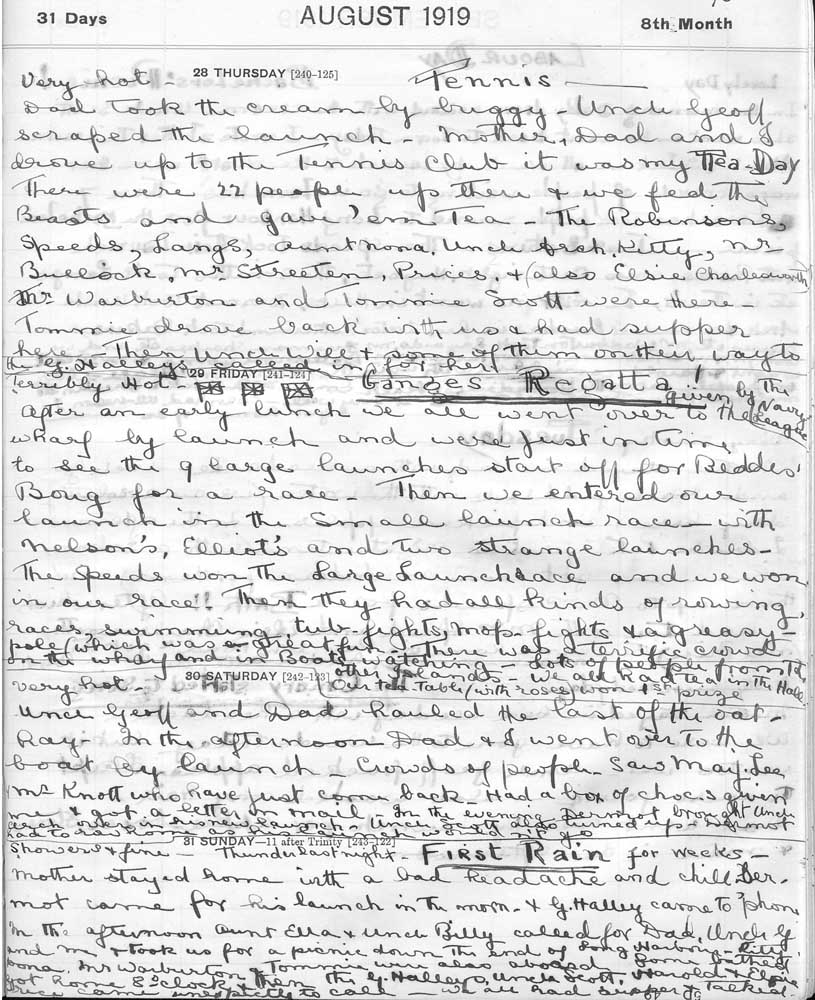 31 Days
AUGUST 1919
8th Month
28 THURSDAY [240-125]
Very hot - Tennis
Dad took the cream by buggy - Uncle Geoff
scraped the launch - Mother, Dad and I
drove up to the Tennis Club it was my Tea Day
There were 22 people up there & we fed the
Beasts and gave 'em Tea - The Robinsons,
Speeds, Langs, Aunt Nona, Uncle Kitty, Mr
Bullock, Mr Streeten, Prices, & (also Elsie Charlesworth)
Mr Warburton and Tommie Scott were there -
Tommie drove back with us & had supper
here - Then Uncle Will & some of them on their way to
the G. Halley's called in for her
29 FRIDAY [241-124]
Terribly Hot - Ganges Regatta! given by the
Navy League
After an early lunch we all went over to the
wharf by launch and were just in time
to see the 9 large launches start off for Beddis'
Bouy for a race - Then we entered our
launch in the small launch race - with
Nelson's, Elliot's and two strange launches -
The Speeds won the Large Launch race and we won
in our race!! Then they had all kinds of rowing,
races, swimming, tub-fights, mop-fights & a greasy-
pole (which was great fun - There was a terrific crowd
on the wharf and in Boats watching - Lots of people from the
other Islands - We all had tea in the Hall
Our tea table (with roses) won 1st prize
30 SATURDAY [242-123]
Very hot -
Uncle Geoff and Dad hauled the last of the oat-
hay. In the afternoon Dad & I went over to the
boat by launch - Crowds of people. Saw May Lee
& Mr Knott who have just come back - Had a box of chocs given
me & got a letter in mail. In the evening Dermot brought Uncle
had to row home as his launch would not go
31 SUNDAY—11 after Trinity [243-122]
Showers & fine - Thunder last night - First Rain for weeks -
Mother stayed home with a bad headache and chill Der-
mot came for his launch in the morn. & G. Halley came to 'phone
In the afternoon Aunt Ella & Uncle Billy called for Dad, Uncle G
and me & took us for a picnic down the end of Long Harbour - Kitty,
Nona, Mr Warburton & Tommie were also aboard
got home 8 o'clock & then the G. Halleys, Uncle Scott, Harold & Elsie
Price came unexpectedly to call - We all had supper & talked